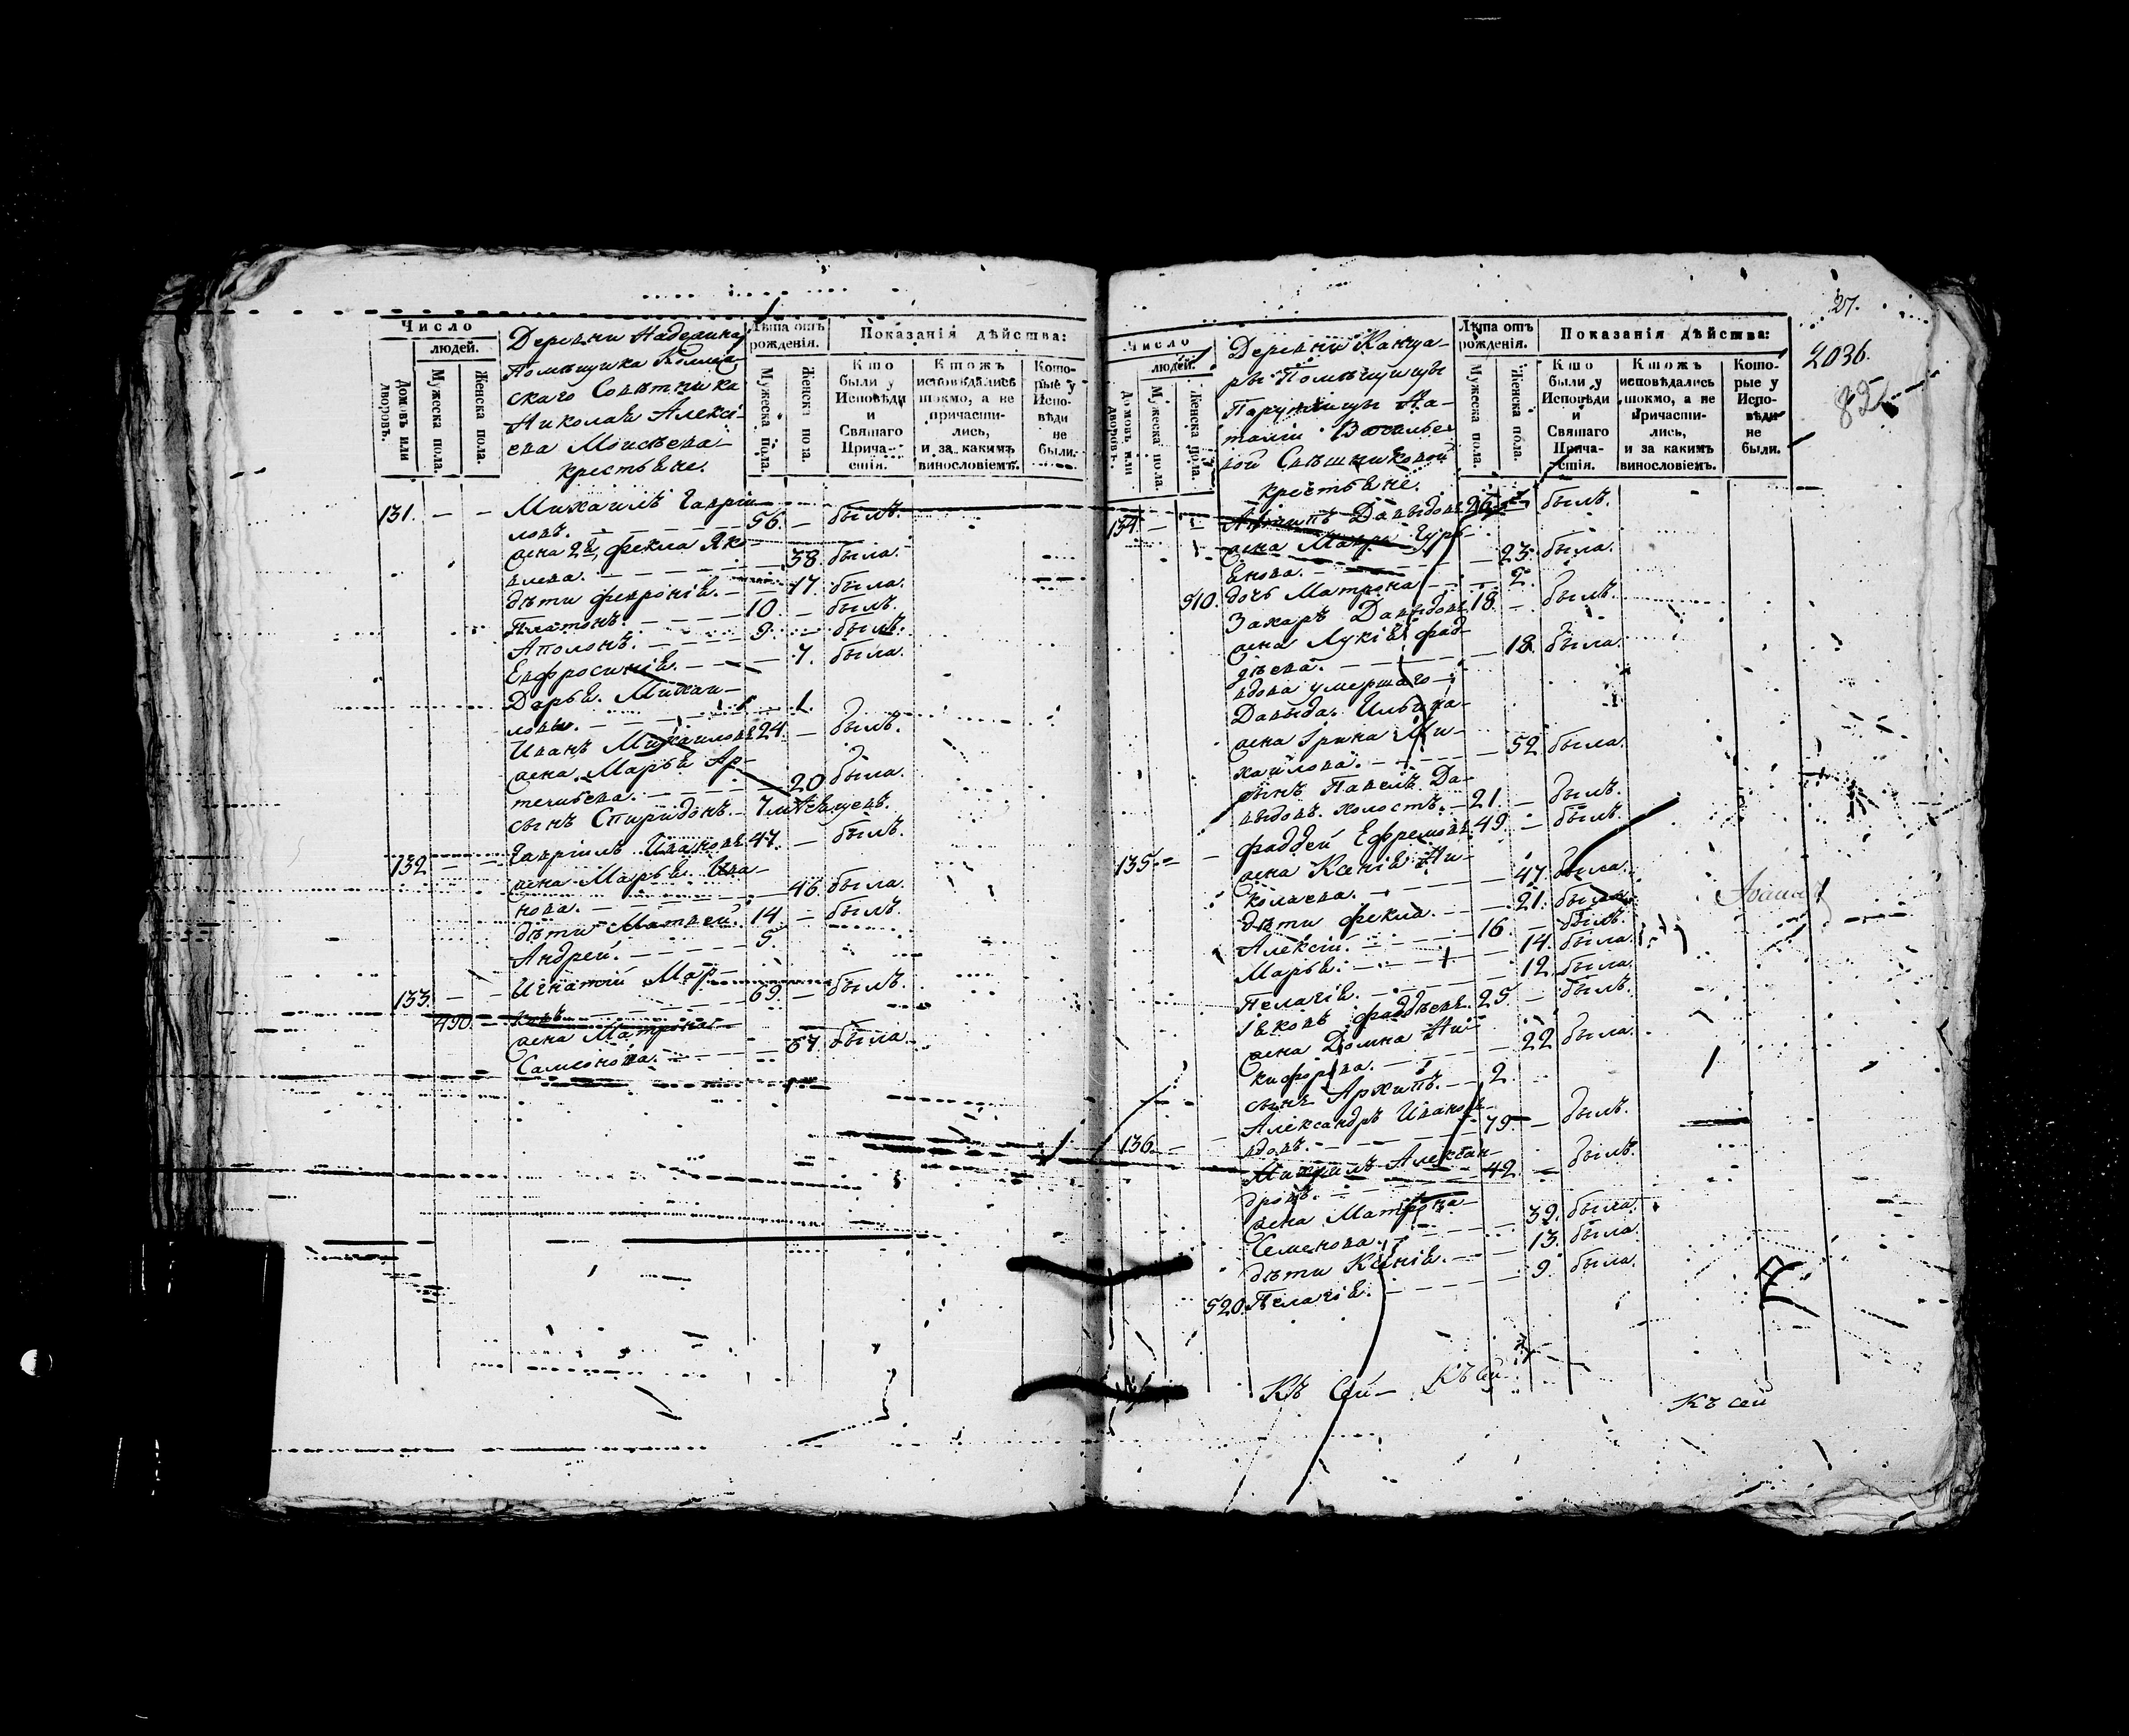 Число
людей.
Домовъ или дворовъ.
Мужеска пола.
Женска пола.
Деревни Наделина
Помѣщика Коллеж
скаго Совѣтника
Николая Алексѣ-
ева Моисѣева
крестьяне.
Лѣта отъ рожденія.
Мужеска пола.
Женска пола.
Показанія дѣйства:
Кто были у Исповѣди и Святаго Причастія.
Ктожъ исповѣдались токмо, а не причастились, и за какимъ винословіемъ.
Которые у Исповѣди не были.
131. — — Михаилъ Гаврiи-
ловъ. — 56. — былъ.
жена 2я, Фекла Яко-
влева. — 38 была.
дѣти Февронія. — — 17. была.
Платонъ. — 10. — былъ.
Аполонъ. — 9. — былъ.
Евфросинія. — — 7. была.
Дарья. Михаи-
ловы. — — 1.
Иванъ Михаиловъ 24. — былъ.
жена Марья Ар-
темьева. — — 20 была.
сынъ Спиридонъ. —
132 — — Гавріилъ Ивановъ 47. — былъ.
жена Марья Ива-
нова. — — 46. была.
дѣти Матвей. 14. — былъ.
Андрей. — 5.
133. — — Игнатій Мар-
ковъ. — 69. — былъ.
490. —
жена Матрона
Самсонова. — — 67. была.
27.
2036.
82
Число
людей.
Домовъ или дворовъ.
Мужеска пола.
Женска пола.
Деревни Канца-
ры Помѣщицы
Поручицы На-
таліи Васильe
вой Свѣшниковой
крестьяне.
Лѣта отъ рожденія.
Мужеска пола.
Женска пола.
Показанія дѣйства:
Кто были у Исповѣди и Святаго Причастія.
Ктожъ исповѣдались токмо, а не причастились, и за какимъ винословіемъ.
Которые у Исповѣди не были.
134 — — Антипъ Давыдовъ 26 — былъ.
жена Мавра Гурь-
янова. — — 23. была.
510. дочь Матрона — — 2.
Захаръ Давыдовъ 18. — былъ.
жена Лукія Фад-
дѣева. — — 18. была.
вдова умершаго
Давыда. Ильина
жена Ірина Ми-
хайлова. — — 52 была.
сынъ Павелъ Да-
выдовъ холостъ. — 21. — былъ.
135. — — Фаддей Ефремовъ 49. — былъ.
жена Ксенія Ни-
колаева. — — 47. была.
дѣти Фекла. — — 21. была.
Алексій. — 16. — былъ.
Марья. — — 14. была.
Пелагія. — — 12. была.
Іаковъ Фаддѣевъ. 25. — былъ.
жена Домна Ни-
кифорова. — — 22 была.
сынъ Архипъ. — 2.
136. — — Александръ Ивановъ
вдовъ. — 79 — былъ.
Михаилъ Алексан-
дровъ. — 42. — былъ.
жена Матрона
Семенова. — — 39. была.
дѣти Ксенія. — — 13. была.
520. Пелагія. — — 9. была.
Къ сей
Къ сей
Къ сей